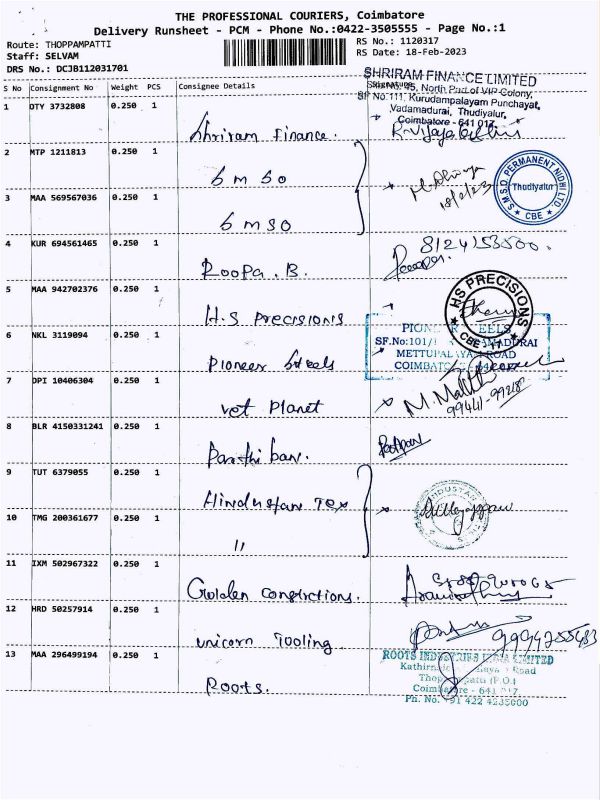 THE PROFESSIONAL COURIERS, Coimbatore
Delivery Runsheet - PCM - Phone No.:0422-3505555 - Page No.:1
Route: THOPPAMPATTI
RS No.: 1120317
Staff: SELVAM
RS Date: 18-Feb-2023
DRS No.: DCJB112031701
S No Consignment No Weight PCS Consignee Details Signature
SHRIRAM FINANCE LIMITED
No. 45, North Part of VIP Colony,
SF No.111, Kurudampalayam Punchayat,
Vadamadurai, Thudiyalur,
Coimbatore - 641 017.
1 DTY 3732808 0.250 1
Shriram Finance.
2 MTP 1211813 0.250 1
S M S O
18/2/23
S.M.S.O. PERMANENT NIDHI LTD
Thudiyalur
CBE
3 MAA 569567036 0.250 1
S M S O
4 KUR 694561465 0.250 1
8124153500.
Roopa. B.
5 MAA 942702376 0.250 1
H.S Precisions
HS PRECISIONS
CBE - 17
6 NKL 3119094 0.250 1
PIONEER STEELS
SF.No:101/
METTUPALAYAM ROAD
COIMBATORE
Pioneer Steels
7 DPI 10406304 0.250 1
Vet Planet
99441-99218
8 BLR 4150331241 0.250 1
Parthiban.
9 TUT 6379055 0.250 1
Hindustan Tex
10 TMG 200361677 0.250 1
"
11 IXM 502967322 0.250 1
Golden constrctions.
12 HRD 50257914 0.250 1
Unicorn Tooling
13 MAA 296499194 0.250 1
Roots.
ROOTS INDUSTRIES INDIA LIMITED
Road
(P.O.)
Coimbatore - 641 017.
Ph. No. +91 422 4235000